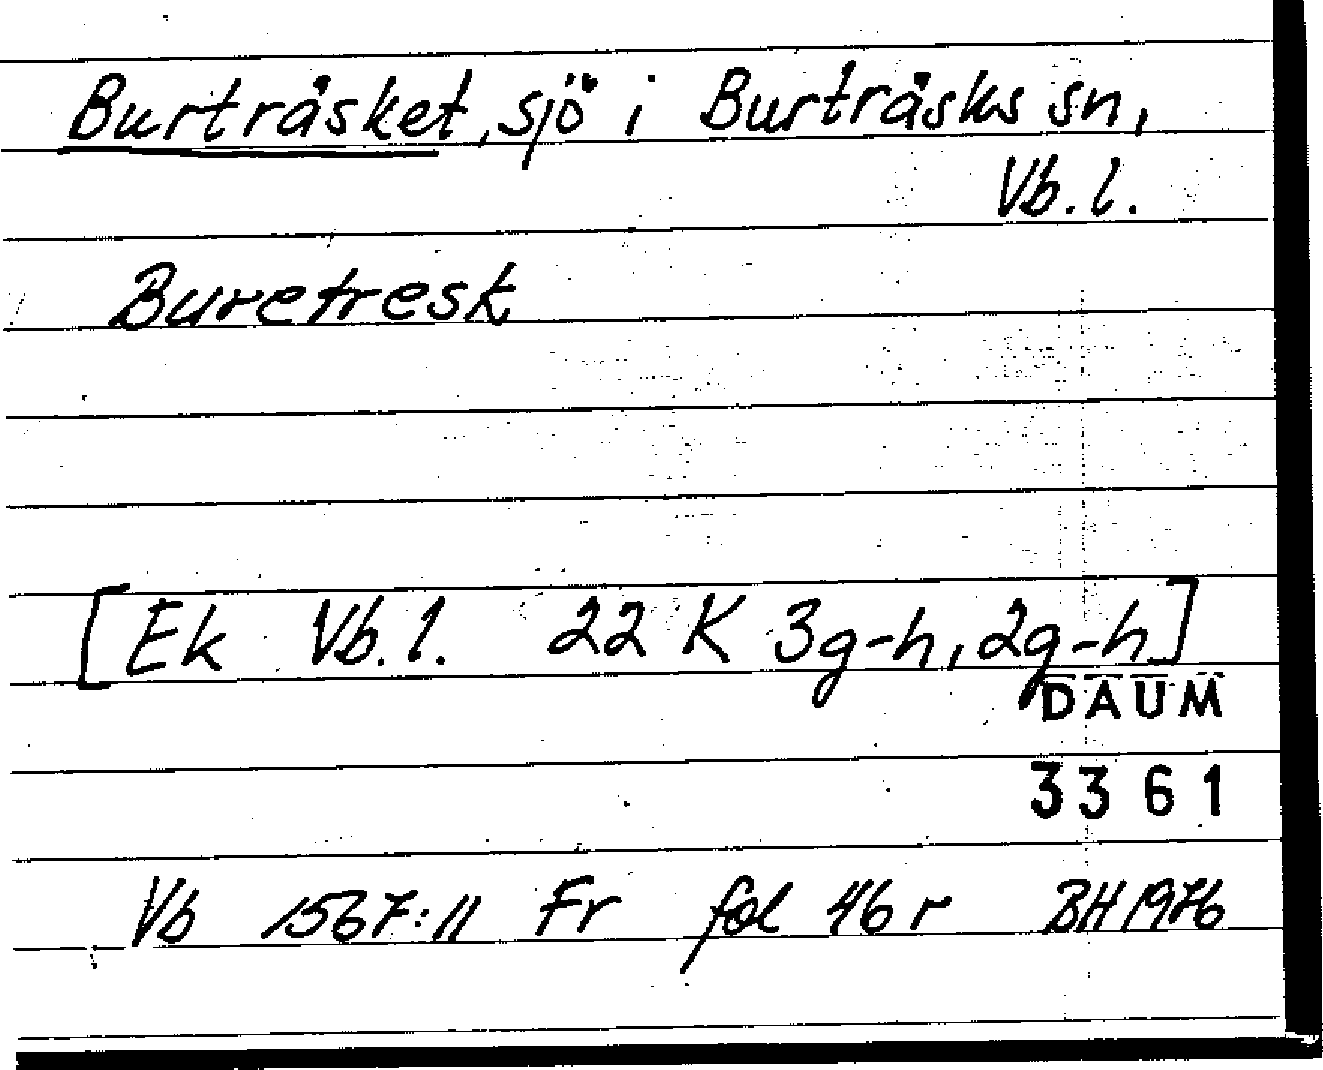 Burträsket, sjö i Burträsks sn,
Vb. l.
Buretresk
[Ek Vb. l. 22 K 3g-h, 2g-h]
DAUM
3361
Vb 1567:11 Fr fol 46 r BH 1976